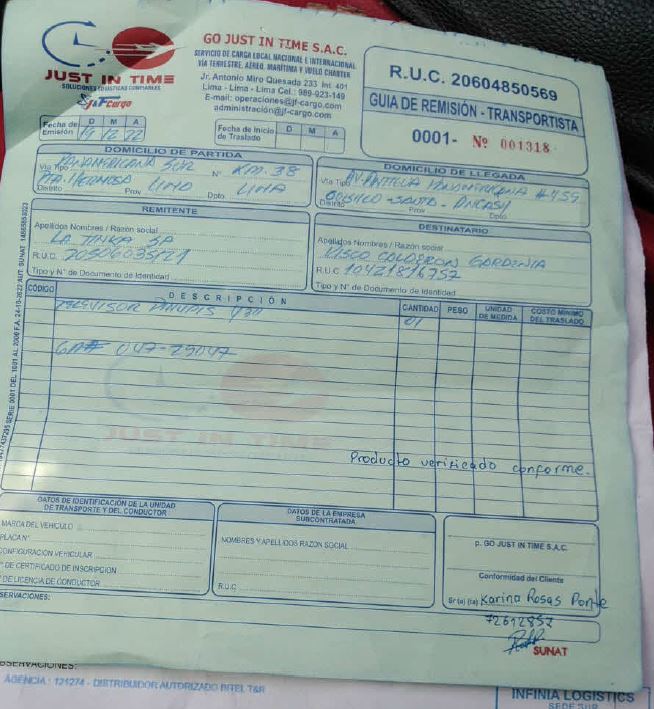 JUST IN TIME
SOLUCIONES LOGÍSTICAS CONFIABLES
J&F Cargo
GO JUST IN TIME S.A.C.
SERVICIO DE CARGA LOCAL NACIONAL E INTERNACIONAL
VÍA TERRESTRE, AÉREO, MARÍTIMA Y VUELO CHARTER
Jr. Antonio Miro Quesada 233 Int. 401
Lima - Lima - Lima Cel.: 989-923-149
E-mail: operaciones@jf-cargo.com
administración@jf-cargo.com
R.U.C. 20604850569
GUIA DE REMISIÓN - TRANSPORTISTA
0001- Nº 001318
Fecha de Emisión D M A
19 12 22
Fecha de Inicio de Traslado D M A
DOMICILIO DE PARTIDA
Vía Tipo PANAMERICANA SUR Nº KM. 38
PTA. HERMOSA LIMA LIMA
Distrito Prov Dpto.
DOMICILIO DE LLEGADA
Vía Tipo AV. ANTIGUA PANAMERICANA #
SANTA - ANCASH
Distrito Prov Dpto.
REMITENTE
Apellidos Nombres / Razón social
LA TINKA SA
R.U.C. 20506035121
Tipo y N° de Documento de Identidad
DESTINATARIO
Apellidos Nombres / Razón social
CALDERON GARDENIA
R.U.C 10421816752
Tipo y N° de Documento de Identidad
CÓDIGO DESCRIPCIÓN CANTIDAD PESO UNIDAD DE MEDIDA COSTO MÍNIMO DEL TRASLADO
TELEVISOR 01
047-29047
JUST IN TIME
Producto verificado conforme.
DATOS DE IDENTIFICACIÓN DE LA UNIDAD DE TRANSPORTE Y DEL CONDUCTOR
MARCA DEL VEHICULO
PLACA N°
CONFIGURACIÓN VEHICULAR
N° DE CERTIFICADO DE INSCRIPCION
N° DE LICENCIA DE CONDUCTOR
DATOS DE LA EMPRESA SUBCONTRATADA
NOMBRES Y APELLIDOS RAZON SOCIAL
R.U.C
p. GO JUST IN TIME S.A.C.
Conformidad del Cliente
Sr(a) (ta) Karina Rosas Ponte
72612852
SERVACIONES:
SUNAT
OBSERVACIONES:
AGENCIA : 121274 - DISTRIBUIDOR AUTORIZADO BITEL T&R
INFINIA LOGISTICS
SEDE SUR